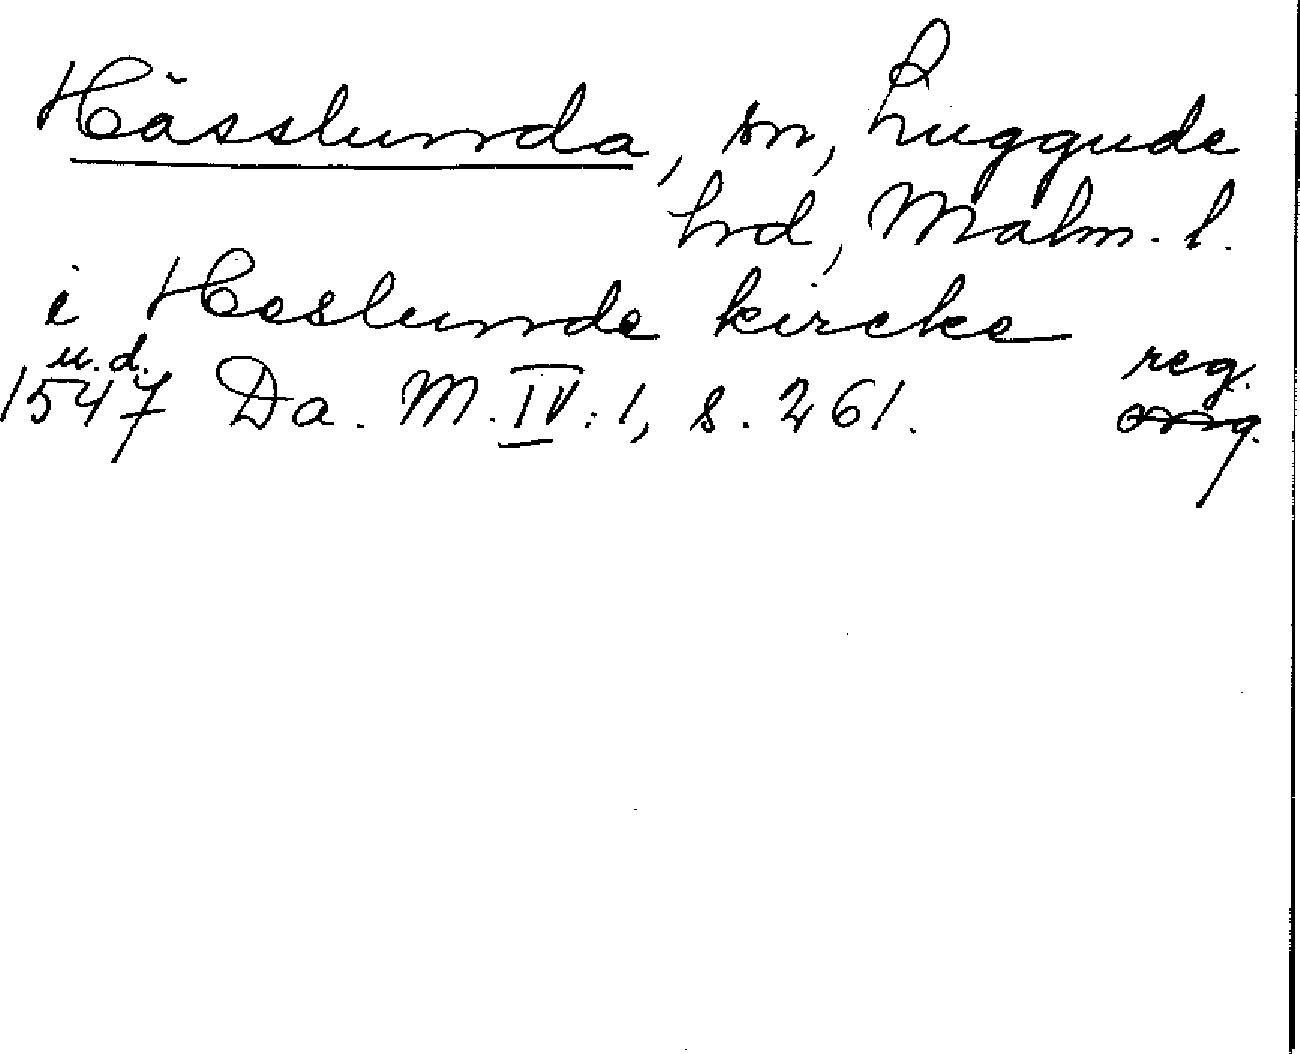 Hässlunda, sn, Luggude
hrd, Malm. l.
i Heslunde kircke
u.d. reg.
1547 Da. M. IV:1, s. 261. orig.